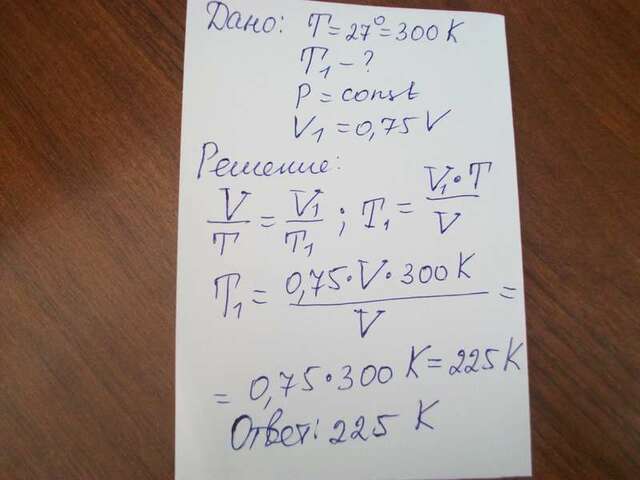 Дано: T = 27° = 300 K
T₁ - ?
P = const
V₁ = 0,75 V
Решение:
V/T = V₁/T₁ ; T₁ = V₁•T/V
T₁ = 0,75•V•300 K/V =
= 0,75•300 K = 225 K
Ответ: 225 K